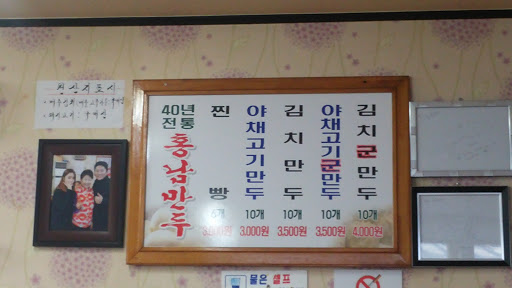 원산지표시
40년
전통
홍남만두
찐빵
6개
3,000원
야채고기만두
10개
3.000원
김치만두
10개
3,500원
야채고기군만두
10개
3,500원
김치군만두
10개
4,000원
물은 셀프